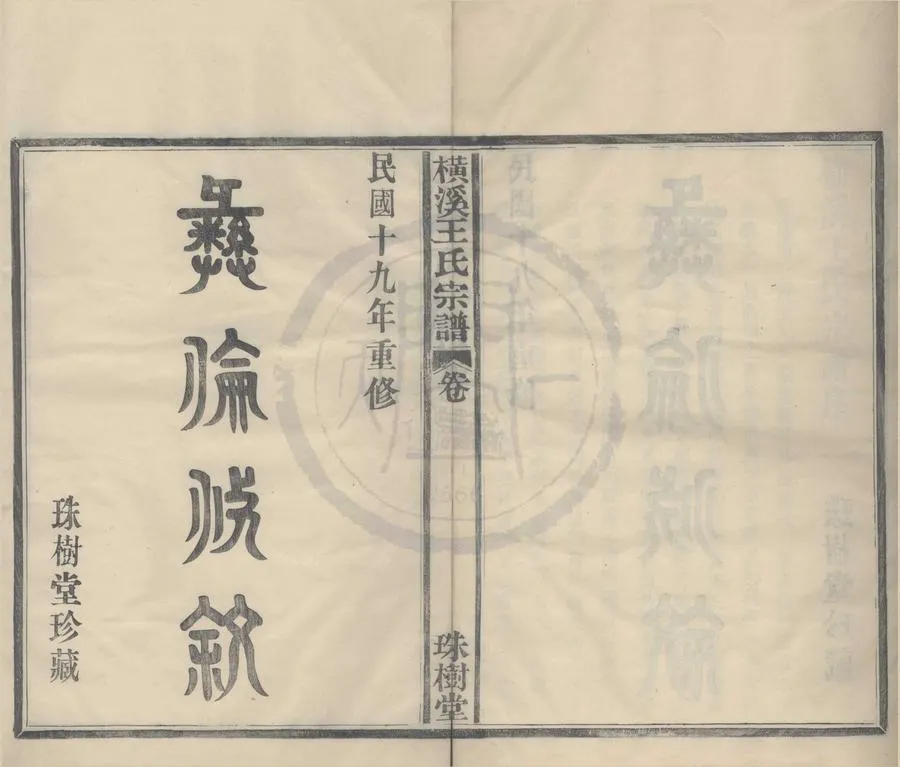 橫溪王氏宗譜
卷
珠樹堂
民國十九年重修
彝倫攸敘
珠樹堂珍藏